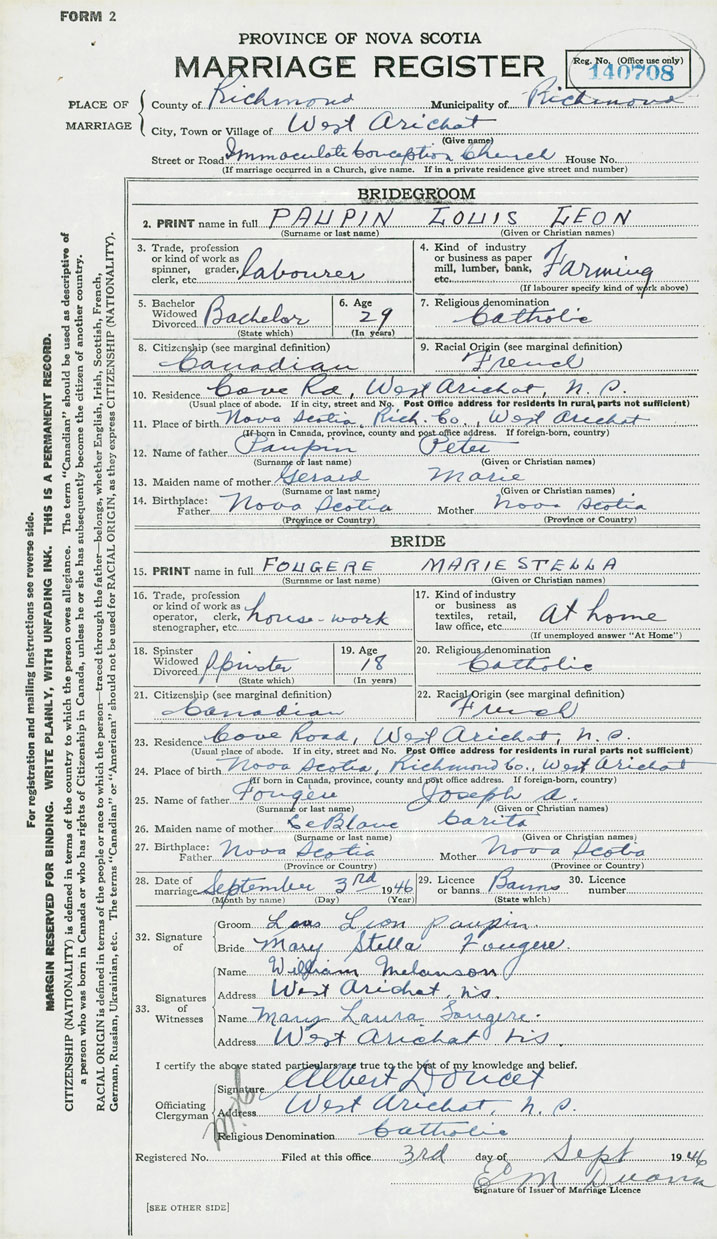 FORM 2
PROVINCE OF NOVA SCOTIA
MARRIAGE REGISTER
Reg. No. (Office use only)
140708
PLACE OF MARRIAGE
County of Richmond Municipality of Richmond
City, Town or Village of West Arichat
(Give name)
Street or Road Immaculate Conception Church House No.
(If marriage occurred in a Church, give name. If in a private residence give street and number)
BRIDEGROOM
2. PRINT name in full PAUPIN LOUIS LEON
(Surname or last name) (Given or Christian names)
3. Trade, profession or kind of work as spinner, grader, clerk, etc. labourer
4. Kind of industry or business as paper mill, lumber, bank, etc. Farming
(If labourer specify kind of work above)
5. Bachelor Widowed Divorced Bachelor
(State which)
6. Age 29
(In years)
7. Religious denomination
Catholic
8. Citizenship (see marginal definition)
Canadian
9. Racial Origin (see marginal definition)
French
10. Residence Cove Rd, West Arichat, N. S.
(Usual place of abode. If in city, street and No. Post Office address for residents in rural parts not sufficient)
11. Place of birth Nova Scotia, Rich. Co., West Arichat
(If born in Canada, province, county and post office address. If foreign-born, country)
12. Name of father Paupin Peter
(Surname or last name) (Given or Christian names)
13. Maiden name of mother Gerard Marie
(Surname or last name) (Given or Christian names)
14. Birthplace: Father Nova Scotia Mother Nova Scotia
(Province or Country) (Province or Country)
BRIDE
15. PRINT name in full FOUGERE MARIE STELLA
(Surname or last name) (Given or Christian names)
16. Trade, profession or kind of work as operator, clerk, stenographer, etc. house-work
17. Kind of industry or business as textiles, retail, law office, etc. at home
(If unemployed answer "At Home")
18. Spinster Widowed Divorced Spinster
(State which)
19. Age 18
(In years)
20. Religious denomination
Catholic
21. Citizenship (see marginal definition)
Canadian
22. Racial Origin (see marginal definition)
French
23. Residence Cove Road, West Arichat, N. S.
(Usual place of abode. If in city, street and No. Post Office address for residents in rural parts not sufficient)
24. Place of birth Nova Scotia, Richmond Co., West Arichat
(If born in Canada, province, county and post office address. If foreign-born, country)
25. Name of father Fougère Joseph A.
(Surname or last name) (Given or Christian names)
26. Maiden name of mother LeBlanc Carita
(Surname or last name) (Given or Christian names)
27. Birthplace: Father Nova Scotia Mother Nova Scotia
(Province or Country) (Province or Country)
28. Date of marriage September 3rd 1946
(Month by name) (Day) (Year)
29. Licence or banns Banns
(State which)
30. Licence number
32. Signature of
Groom Leon Paupin.
Bride Mary Stella Fougere.
33. Signatures of Witnesses
Name William Melanson
Address West Arichat, N.S.
Name Mary Laura Fougere.
Address West Arichat N.S.
I certify the above stated particulars are true to the best of my knowledge and belief.
Officiating Clergyman
Signature Albert Doucet
Address West Arichat, N. S.
Religious Denomination Catholic
Registered No. Filed at this office 3rd day of Sept 1946
E M Duann
Signature of Issuer of Marriage Licence
[SEE OTHER SIDE]
For registration and mailing instructions see reverse side.
MARGIN RESERVED FOR BINDING. WRITE PLAINLY, WITH UNFADING INK. THIS IS A PERMANENT RECORD.
CITIZENSHIP (NATIONALITY) is defined in terms of the country to which the person owes allegiance. The term "Canadian" should be used as descriptive of
a person who was born in Canada or who has rights of Citizenship in Canada, unless he or she has subsequently become the citizen of another country.
RACIAL ORIGIN is defined in terms of the people or race to which the person—traced through the father—belongs, whether English, Irish, Scottish, French,
German, Russian, Ukrainian, etc. The terms "Canadian" or "American" should not be used for RACIAL ORIGIN, as they express CITIZENSHIP (NATIONALITY).